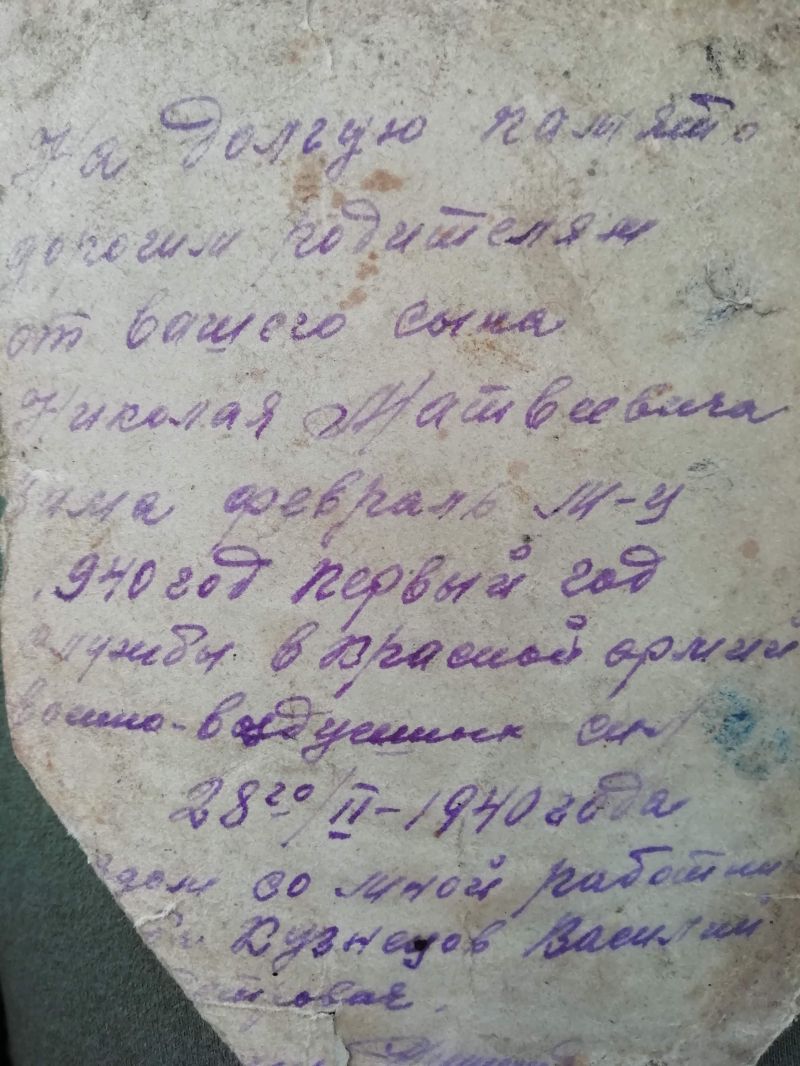 На долгую память
дорогим родителям
от вашего сына
Николая Матвеевича
зима февраль м-ц
1940 год первый год
службы в красной армий
военно-воздушных сил
28го/II-1940 года
рядом со мной работни
Кузнецов Василий
Петрович.